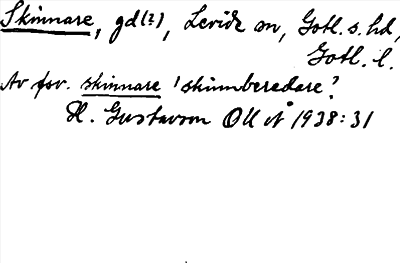 Skinnare, gd(?), Levide sn, Gotl. s. hd,
Gotl. l.
Av fsv. skinnare 'skinnberedare'?
H. Gustavson OUÅ 1938:31